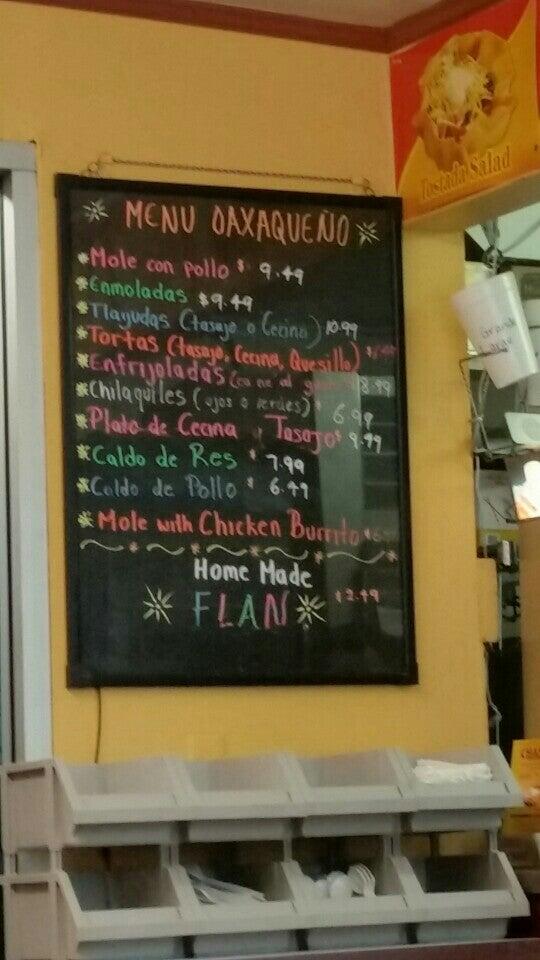 MENU OAXAQUEÑO
Mole con pollo $ 9.49
Enmoladas $9.49
Tlayudas (tasajo o Cecina) 10.99
Tortas (tasajo, Cecina, Quesillo)
Enfrijoladas 8.99
Chilaquiles (rojos o verdes) $ 6.99
Plato de Cecina y Tasajo $ 9.99
Caldo de Res $ 7.99
Caldo de Pollo $ 6.49
Mole with Chicken Burrito
Home Made
FLAN $2.49
Tostada Salad